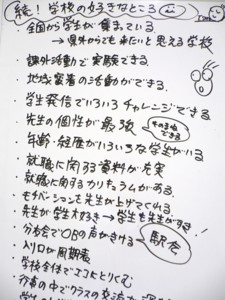 続！学校の好きなところ
・全国から学生が集まっている
→県外からでも来たいと思える学校
・課外活動で実験できる
・地域密着の活動ができる。
・学生発信でいろいろチャレンジできる
・先生の個性が最強
・年齢・経歴がいろいろな学生がいる
・就職に関する資料が充実
・就職に関するカリキュラムがある。
・モチベーションを先生が上げてくれる
・先生が学生大好き→学生も先生がすき！
・分布会でOBの声がきける
駅会
・入り口が関所
・学校全体でエコにとりくむ
の中でクラスの交流が